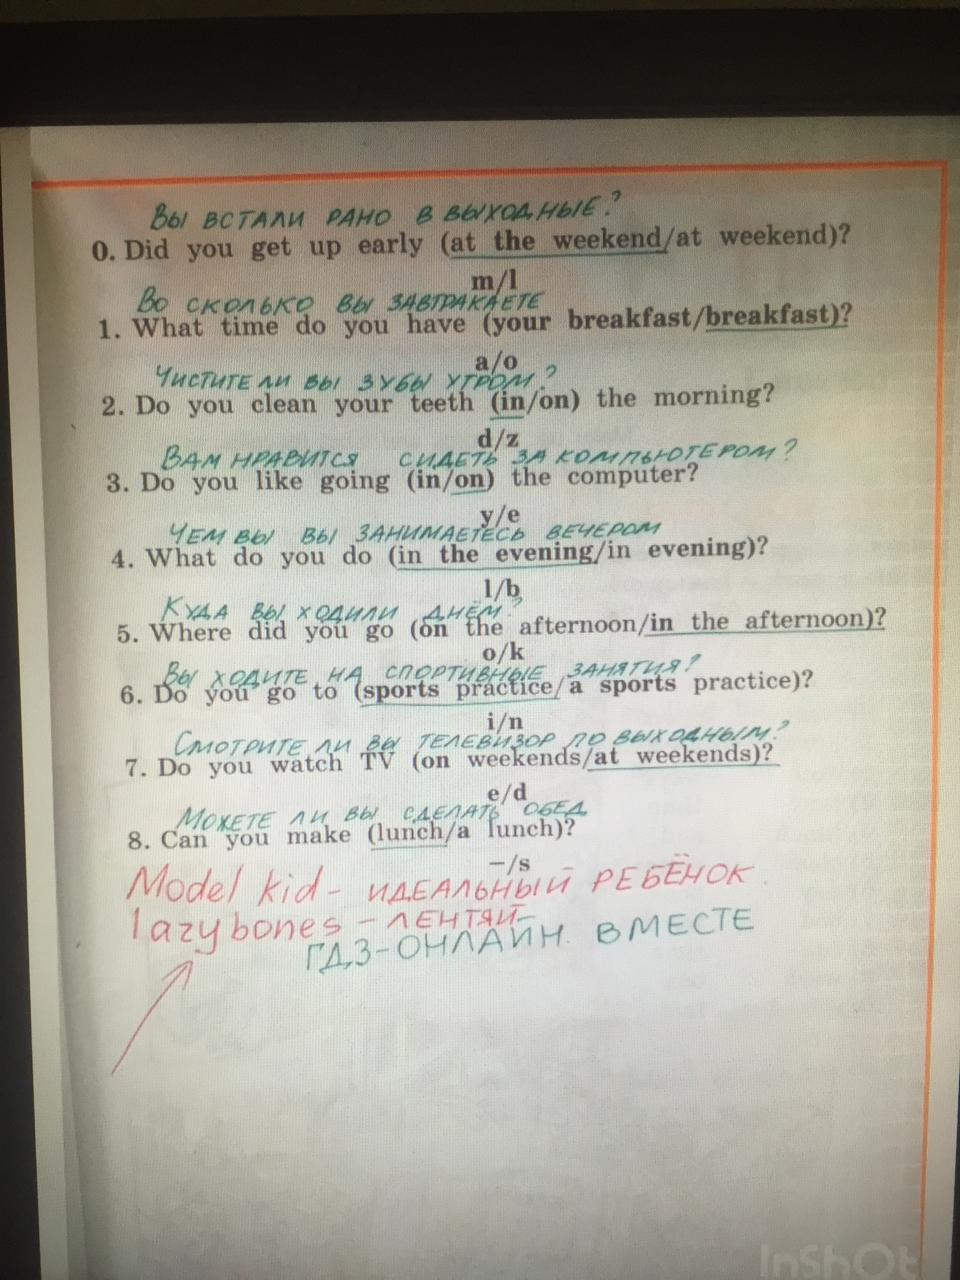 Вы встали рано в выходные?
0. Did you get up early (at the weekend/at weekend)?
m/l
Во сколько вы завтракаете
1. What time do you have (your breakfast/breakfast)?
a/o
Чистите ли вы зубы утром?
2. Do you clean your teeth (in/on) the morning?
d/z
Вам нравится сидеть за компьютером?
3. Do you like going (in/on) the computer?
y/e
Чем вы вы занимаетесь вечером
4. What do you do (in the evening/in evening)?
l/b
Куда вы ходили днём?
5. Where did you go (on the afternoon/in the afternoon)?
o/k
Вы ходите на спортивные занятия?
6. Do you go to (sports practice/a sports practice)?
i/n
Смотрите ли вы телевизор по выходным?
7. Do you watch TV (on weekends/at weekends)?
e/d
Можете ли вы сделать обед
8. Can you make (lunch/a lunch)?
–/s
Model kid - идеальный ребёнок.
lazybones - лентяй
ГДЗ-онлайн вместе
InShOt